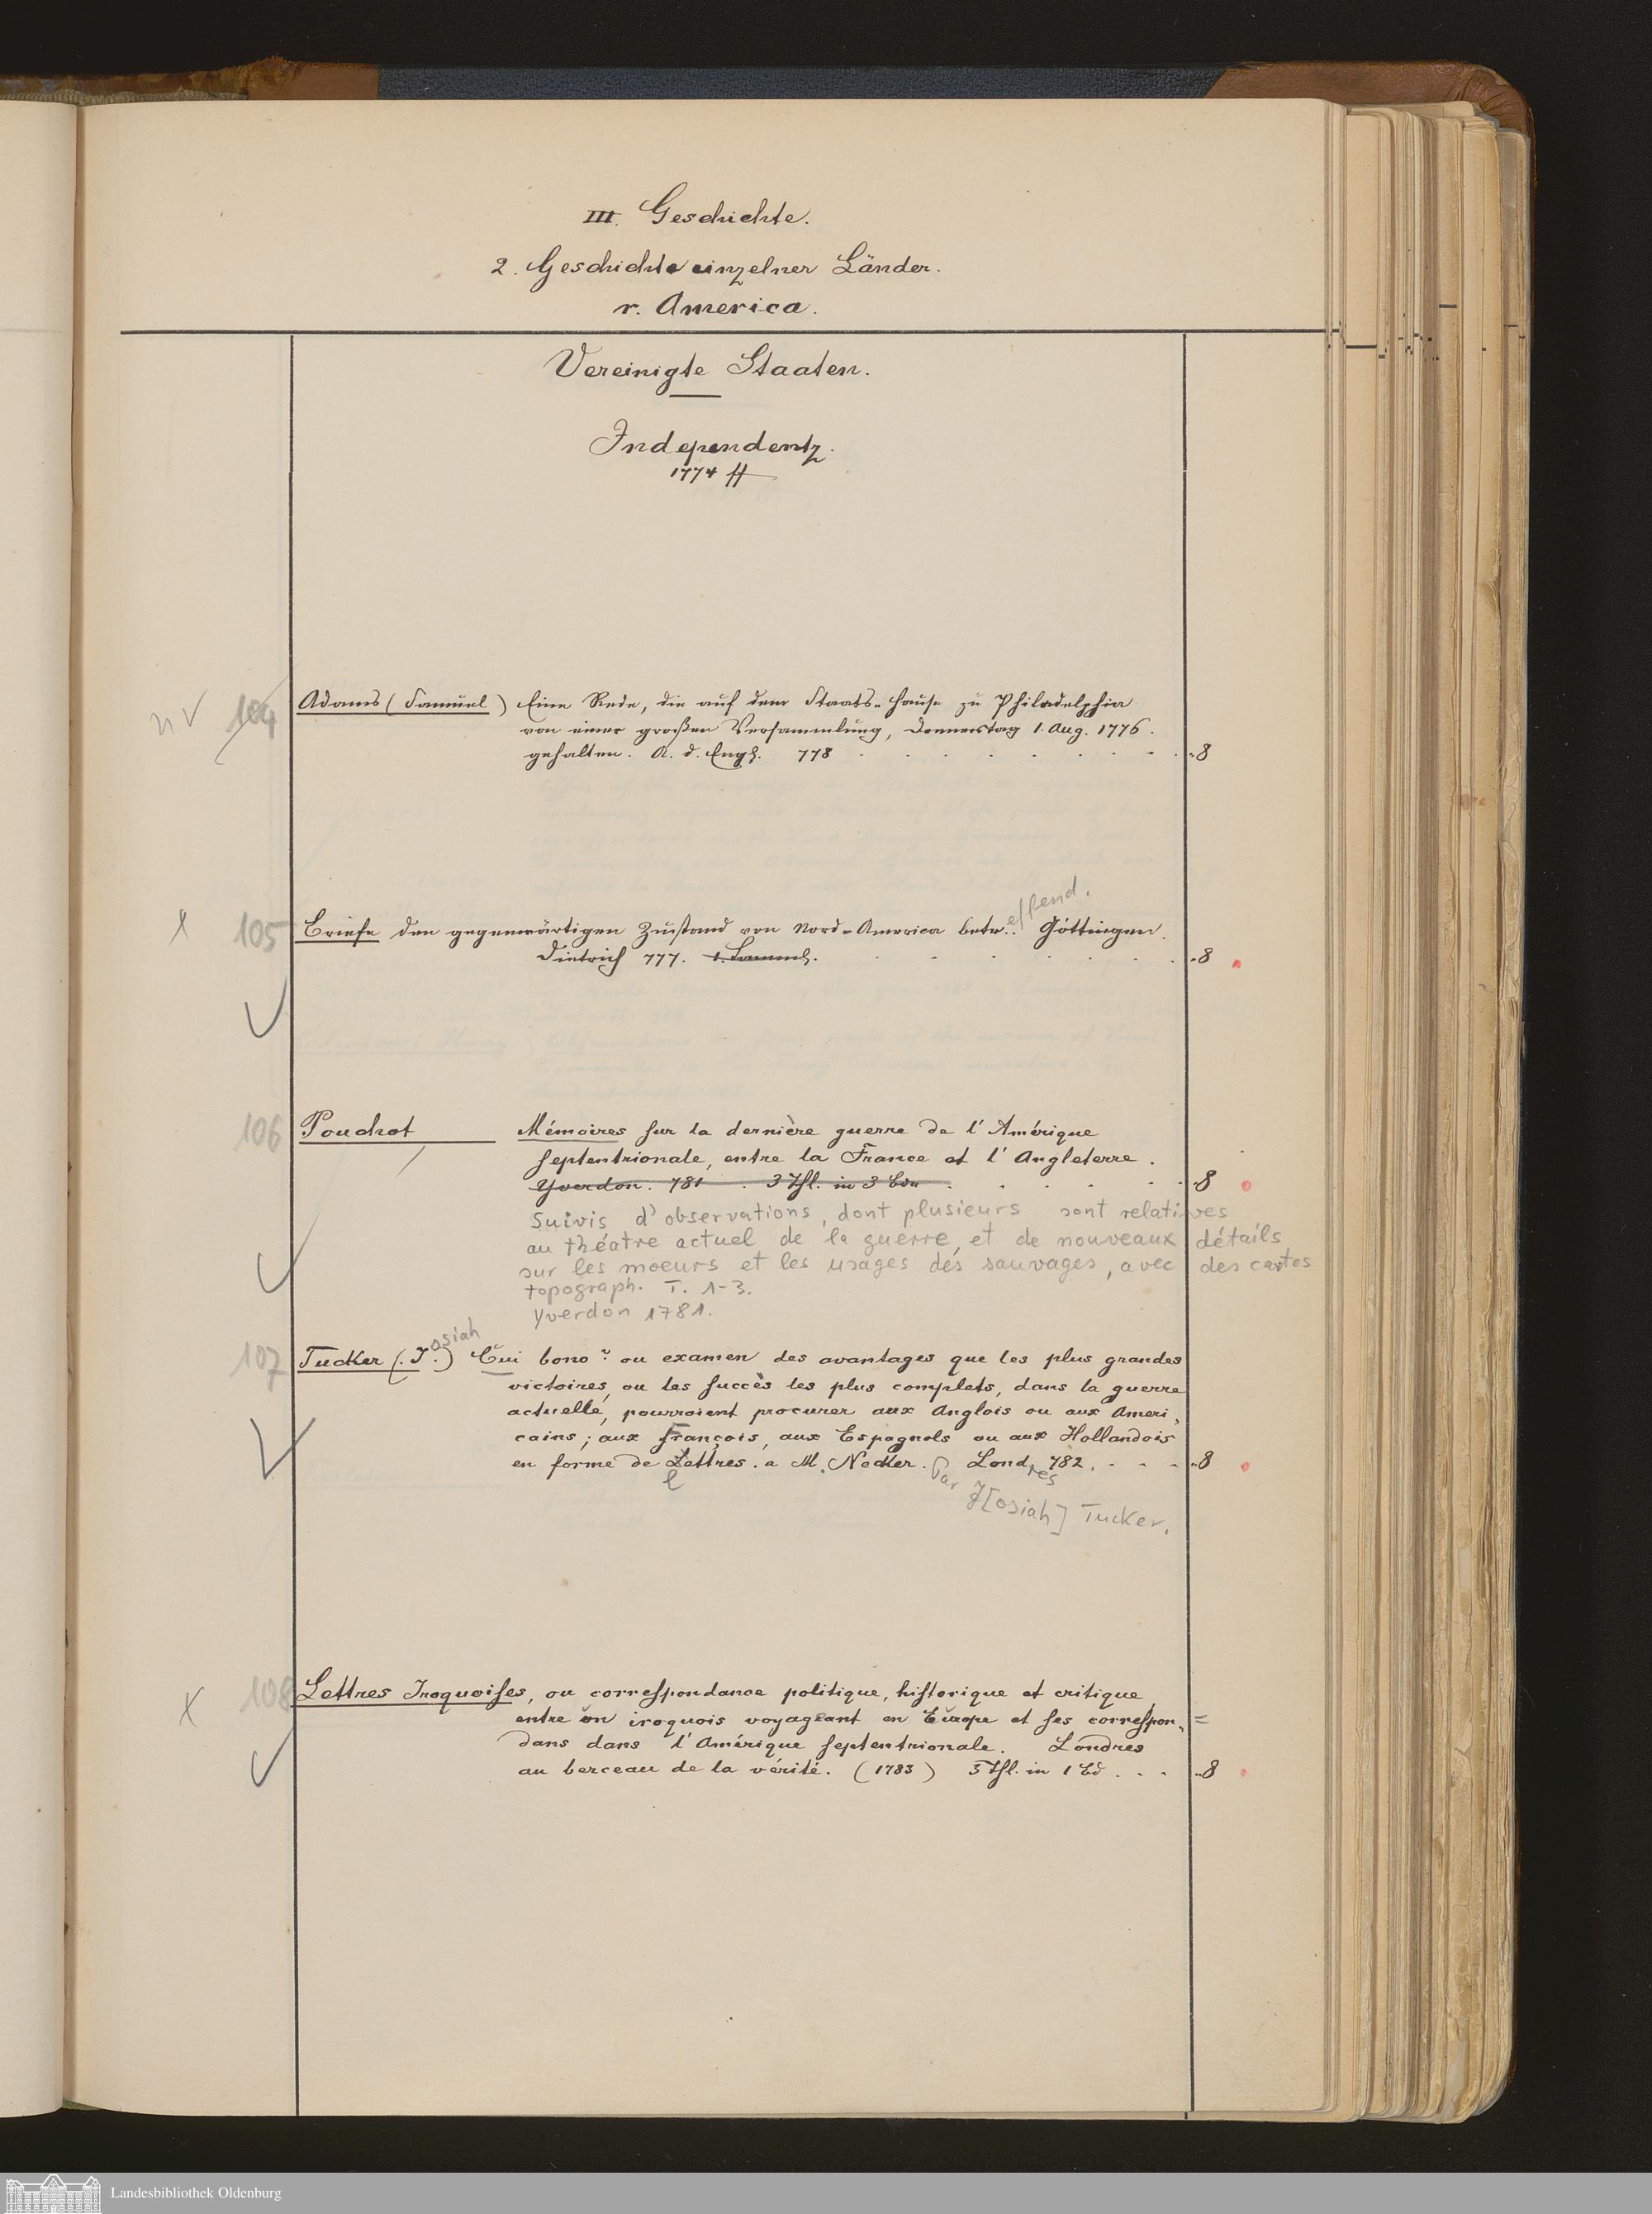 III. Geschichte.
2. Geschichte einzelner Länder.
r. America.
Vereinigte Staaten.
Independentz.
1774 ff
n v 104 Adams (Samuel) Eine Rede, die auf dem Staats-Hause zu Philadelphia
von einer großen Versammlung, Donnerstag 1. Aug. 1776.
gehalten. A. d. Engl. 778 . . . . . . . . 8
x 105 Briefe den gegenwärtigen Zustand von Nord-America betr.. effend. Göttingen.
Dietrich 777. 1. Samml. . . . . . . . 8
106 Pouchot Mémoires sur la dernière guerre de l'Amérique
septentrionale, entre la France et l'Angleterre.
Yverdon. 781 . 3 Thl. in 3 Bdn . . . . . 8
Suivis d'observations, dont plusieurs sont relatives
au théatre actuel de la guerre, et de nouveaux détails
sur les moeurs et les usages des sauvages, avec des cartes
topograph. T. 1-3.
Yverdon 1781.
107 Tucker (J.osiah) Cui bono? ou examen des avantages que les plus grandes
victoires, ou les succès les plus complets, dans la guerre
actuelle, pourroient procurer aux Anglois ou aux Ameri,
cains; aux françois, aux Espagnols ou aux Hollandois
en forme de Lettres. a M. Necker. Londres 782. . . . 8
l Par J[osiah] Tucker.
x 108 Lettres Iroquoises, ou correspondance politique, historique et critique,
entre un iroquois voyageant en Europe et ses correspon, =
dans dans l'Amérique septentrionale. Londres
au berceau de la vérité. (1783) 3 Thl. in 1 Bd . . . 8
Landesbibliothek Oldenburg